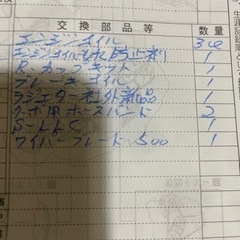 交換部品等 数量
エンジンオイル 3.4
エンジンオイルもれ防止剤 1
R.カップキット 1
ブレーキオイル 1
ラジエター社外新品 1
ターボ用ホースバンド 2
LLC 1
ワイパーブレード 500 1